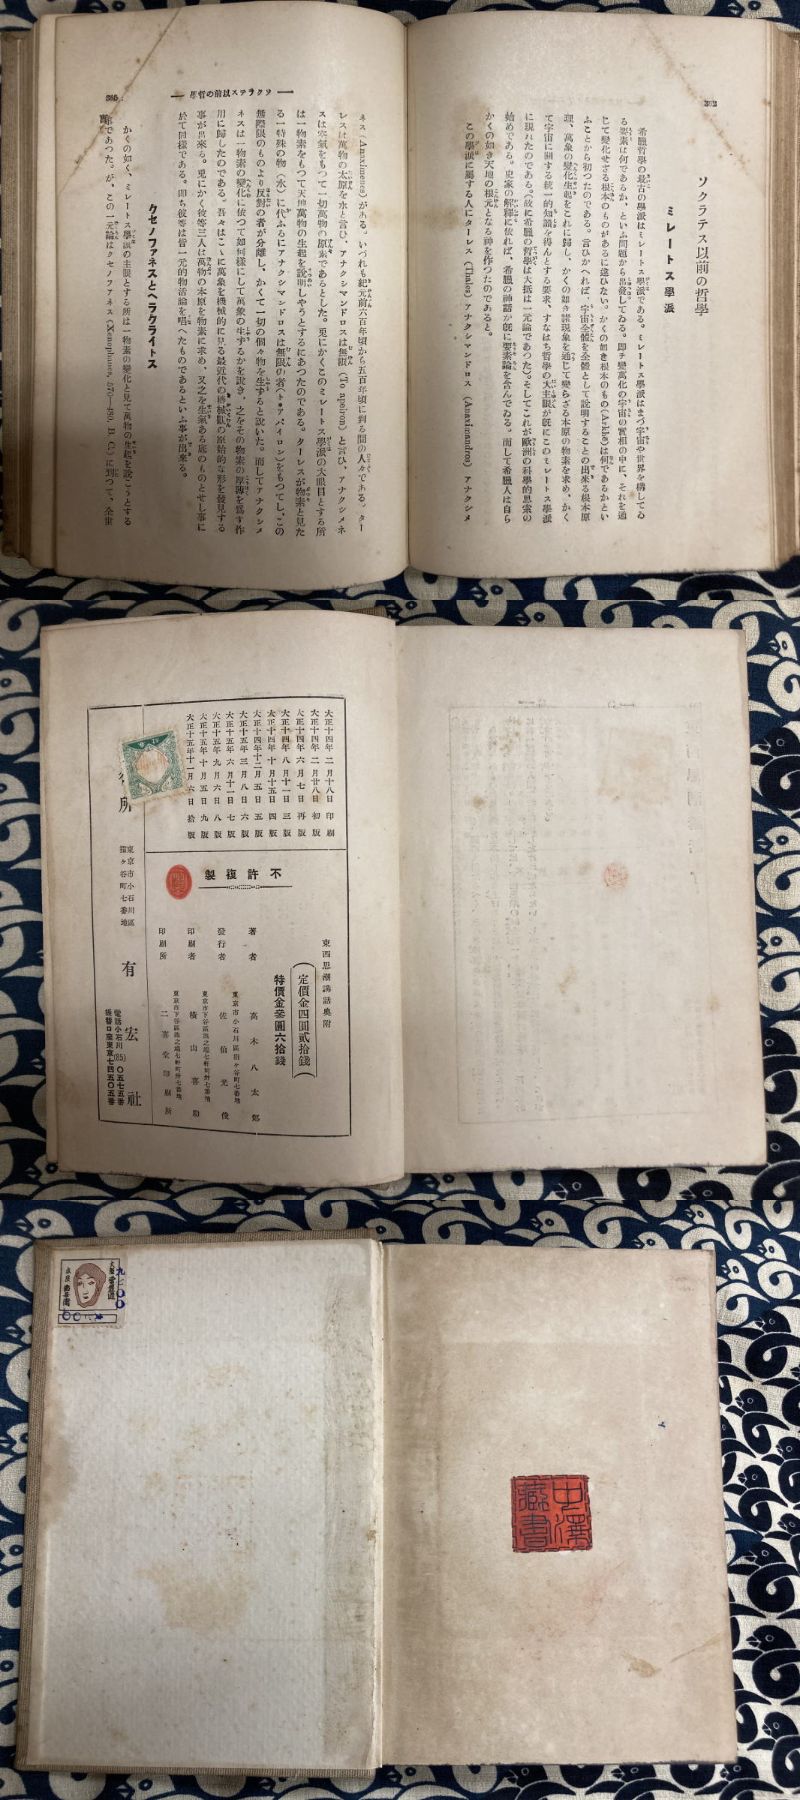 ソクラテス以前の哲學
ミレートス學派
希臘哲學の最古の學派はミレートス學派である。ミレートス學派はまづ宇宙や世界を構してゐ
る要素は何であるか、といふ問題から出發してゐる。即チ變萬化の宇宙の實相の中に、それを通
じて變化せざる根本のものがあるに違ひない。かくの如き根本のもの(Arkhē)は何であるかとい
ふことから初つたのである。言ひかへれば、宇宙全體を全體として說明することの出來る根本原
理、萬象の變化生起をこれに歸し、かくの如き諸現象を通じて變らざる本原の物素を求め、かく
て宇宙に關する統一的知識を得んとする要求、すなはち哲學の大主眼が旣にこのミレートス學派
に現れたのである。故に希臘の哲學は大抵は一元論であつた。そしてこれが歐洲の科學的思索の
始めである。史家の解釋に依れば、希臘の神話が旣に要素論を含んでゐる。而して希臘人は自ら
かくの如き天地の根元となる神を作つたのであると。
この學派に屬する人にターレス(Thales)アナクシマンドロス(Anaximandros)アナクシメ
ソクラテス以前の哲學
ネス(Anaximenes)がある。いづれも紀元前六百年頃から五百年頃に到る間の人々である。ター
レスは萬物の太原を水と言ひ、アナクシマンドロスは無限(To apeiron)と言ひ、アナクシメネ
スは空氣をもつて一切萬物の原素であるとした。兎にかくこのミレートス學派の大眼目とする所
は一物素をもつて天地萬物の生起を說明しやうとするにあつたのである。ターレスが物素と見た
る一特殊の物(水)に代ふるにアナクシマンドロスは無限の者(トオアパイロン)をもつてし、この
無際限のものより反對の者が分離し、かくて一切の個々物を生ずると說いた。而してアナクシメ
ネスは一物素の變化に依つて如何樣にして萬象の生ずるかを說き、之をその物素の厚薄を爲す作
用に歸したのである。吾々はこゝに萬象を機械的に見る最近代の機械觀の原始的な形を發見する
事が出來る。兎にかく彼等三人は萬物の本原を物素に求め、又之を生氣ある底のものとせし事に
於て同樣である。即ち彼等は皆一元的物活論を唱へたものであるといふ事が出來る。
クセノファネスとヘラクライトス
かくの如く、ミレートス學派の主眼とする所は一物素の變化と見て萬物の生起を說こうとする
事であつた。が、この一元論はクセノファネス(Xenophanes, 570—480, B.C.)に到つて、全世
大正十四年二月十八日印刷
大正十四年二月廿八日初版
大正十四年六月七日再版
大正十四年八月十一日三版
大正十四年十月十五日四版
大正十四年十二月五日五版
大正十五年三月八日六版
大正十五年六月十一日七版
大正十五年九月六日八版
大正十五年十月五日九版
大正十五年十一月六日拾版
不許複製
東西思潮講話奥附
(定價金四圓貳拾錢)
特價金參圓六拾錢
著者 高木八太郎
東京市小石川區掃ヶ谷町七番地
發行者 佐伯光俊
印刷者 橫山喜助
印刷所 二喜堂印刷所
所
東京市小石川區
籠ヶ谷町七番地
有宏社
電話小石川(85)〇五七五番
振替口座東京七四五〇五番
中澤
藏書